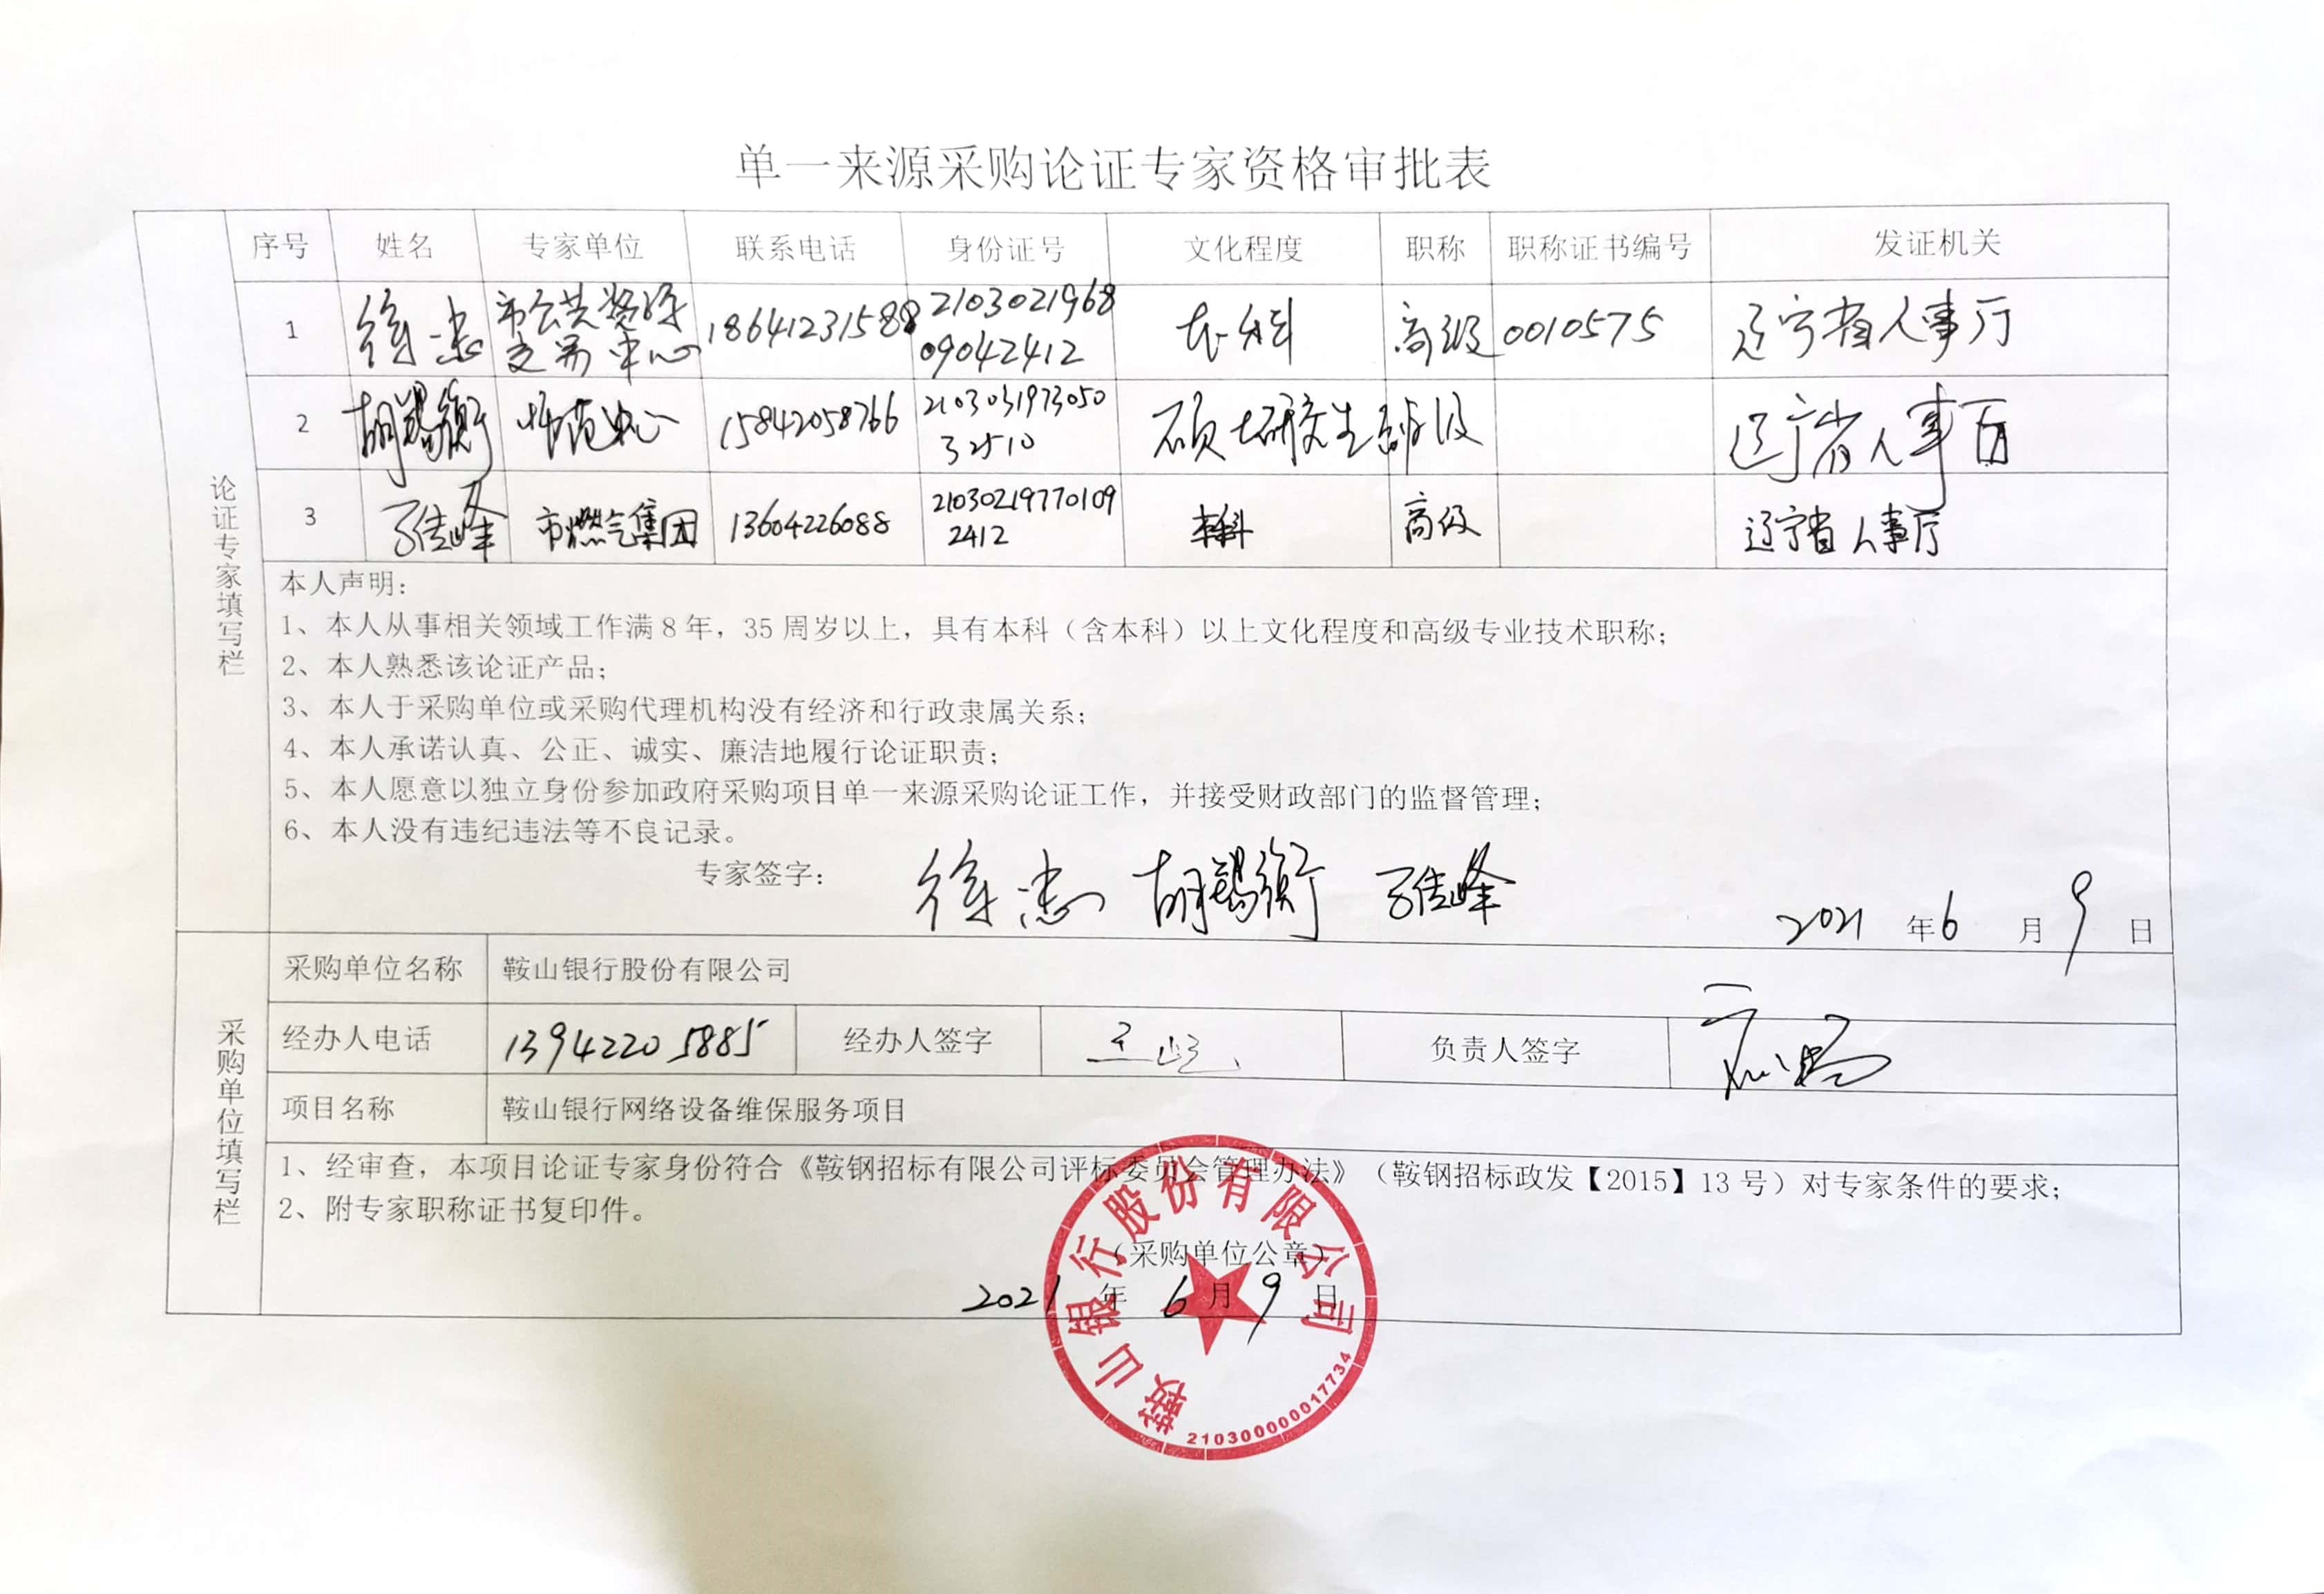 单一来源采购论证专家资格审批表
序号 姓名 专家单位 联系电话 身份证号 文化程度 职称 职称证书编号 发证机关
论证专家填写栏
1 徐忠 市公共资源交易中心 18641231588 210302196809042412 本科 高级 0010575 辽宁省人事厅
2 胡锡衡 师范中心 15842058766 210303197305032510 硕士研究生 高级 辽宁省人事厅
3 张峰 市燃气集团 13604226088 210302197701092412 本科 高级 辽宁省人事厅
本人声明：
1、本人从事相关领域工作满8年，35周岁以上，具有本科（含本科）以上文化程度和高级专业技术职称；
2、本人熟悉该论证产品；
3、本人于采购单位或采购代理机构没有经济和行政隶属关系；
4、本人承诺认真、公正、诚实、廉洁地履行论证职责；
5、本人愿意以独立身份参加政府采购项目单一来源采购论证工作，并接受财政部门的监督管理；
6、本人没有违纪违法等不良记录。
专家签字： 徐忠 胡锡衡
2021 年 6 月 9 日
采购单位填写栏
采购单位名称 鞍山银行股份有限公司
经办人电话 13942205885 经办人签字 负责人签字
项目名称 鞍山银行网络设备维保服务项目
1、经审查，本项目论证专家身份符合《鞍钢招标有限公司评标委员会管理办法》（鞍钢招标政发【2015】13号）对专家条件的要求；
2、附专家职称证书复印件。
（采购单位公章）
2021 年 6 月 9 日
鞍山银行股份有限公司
2103000000017734